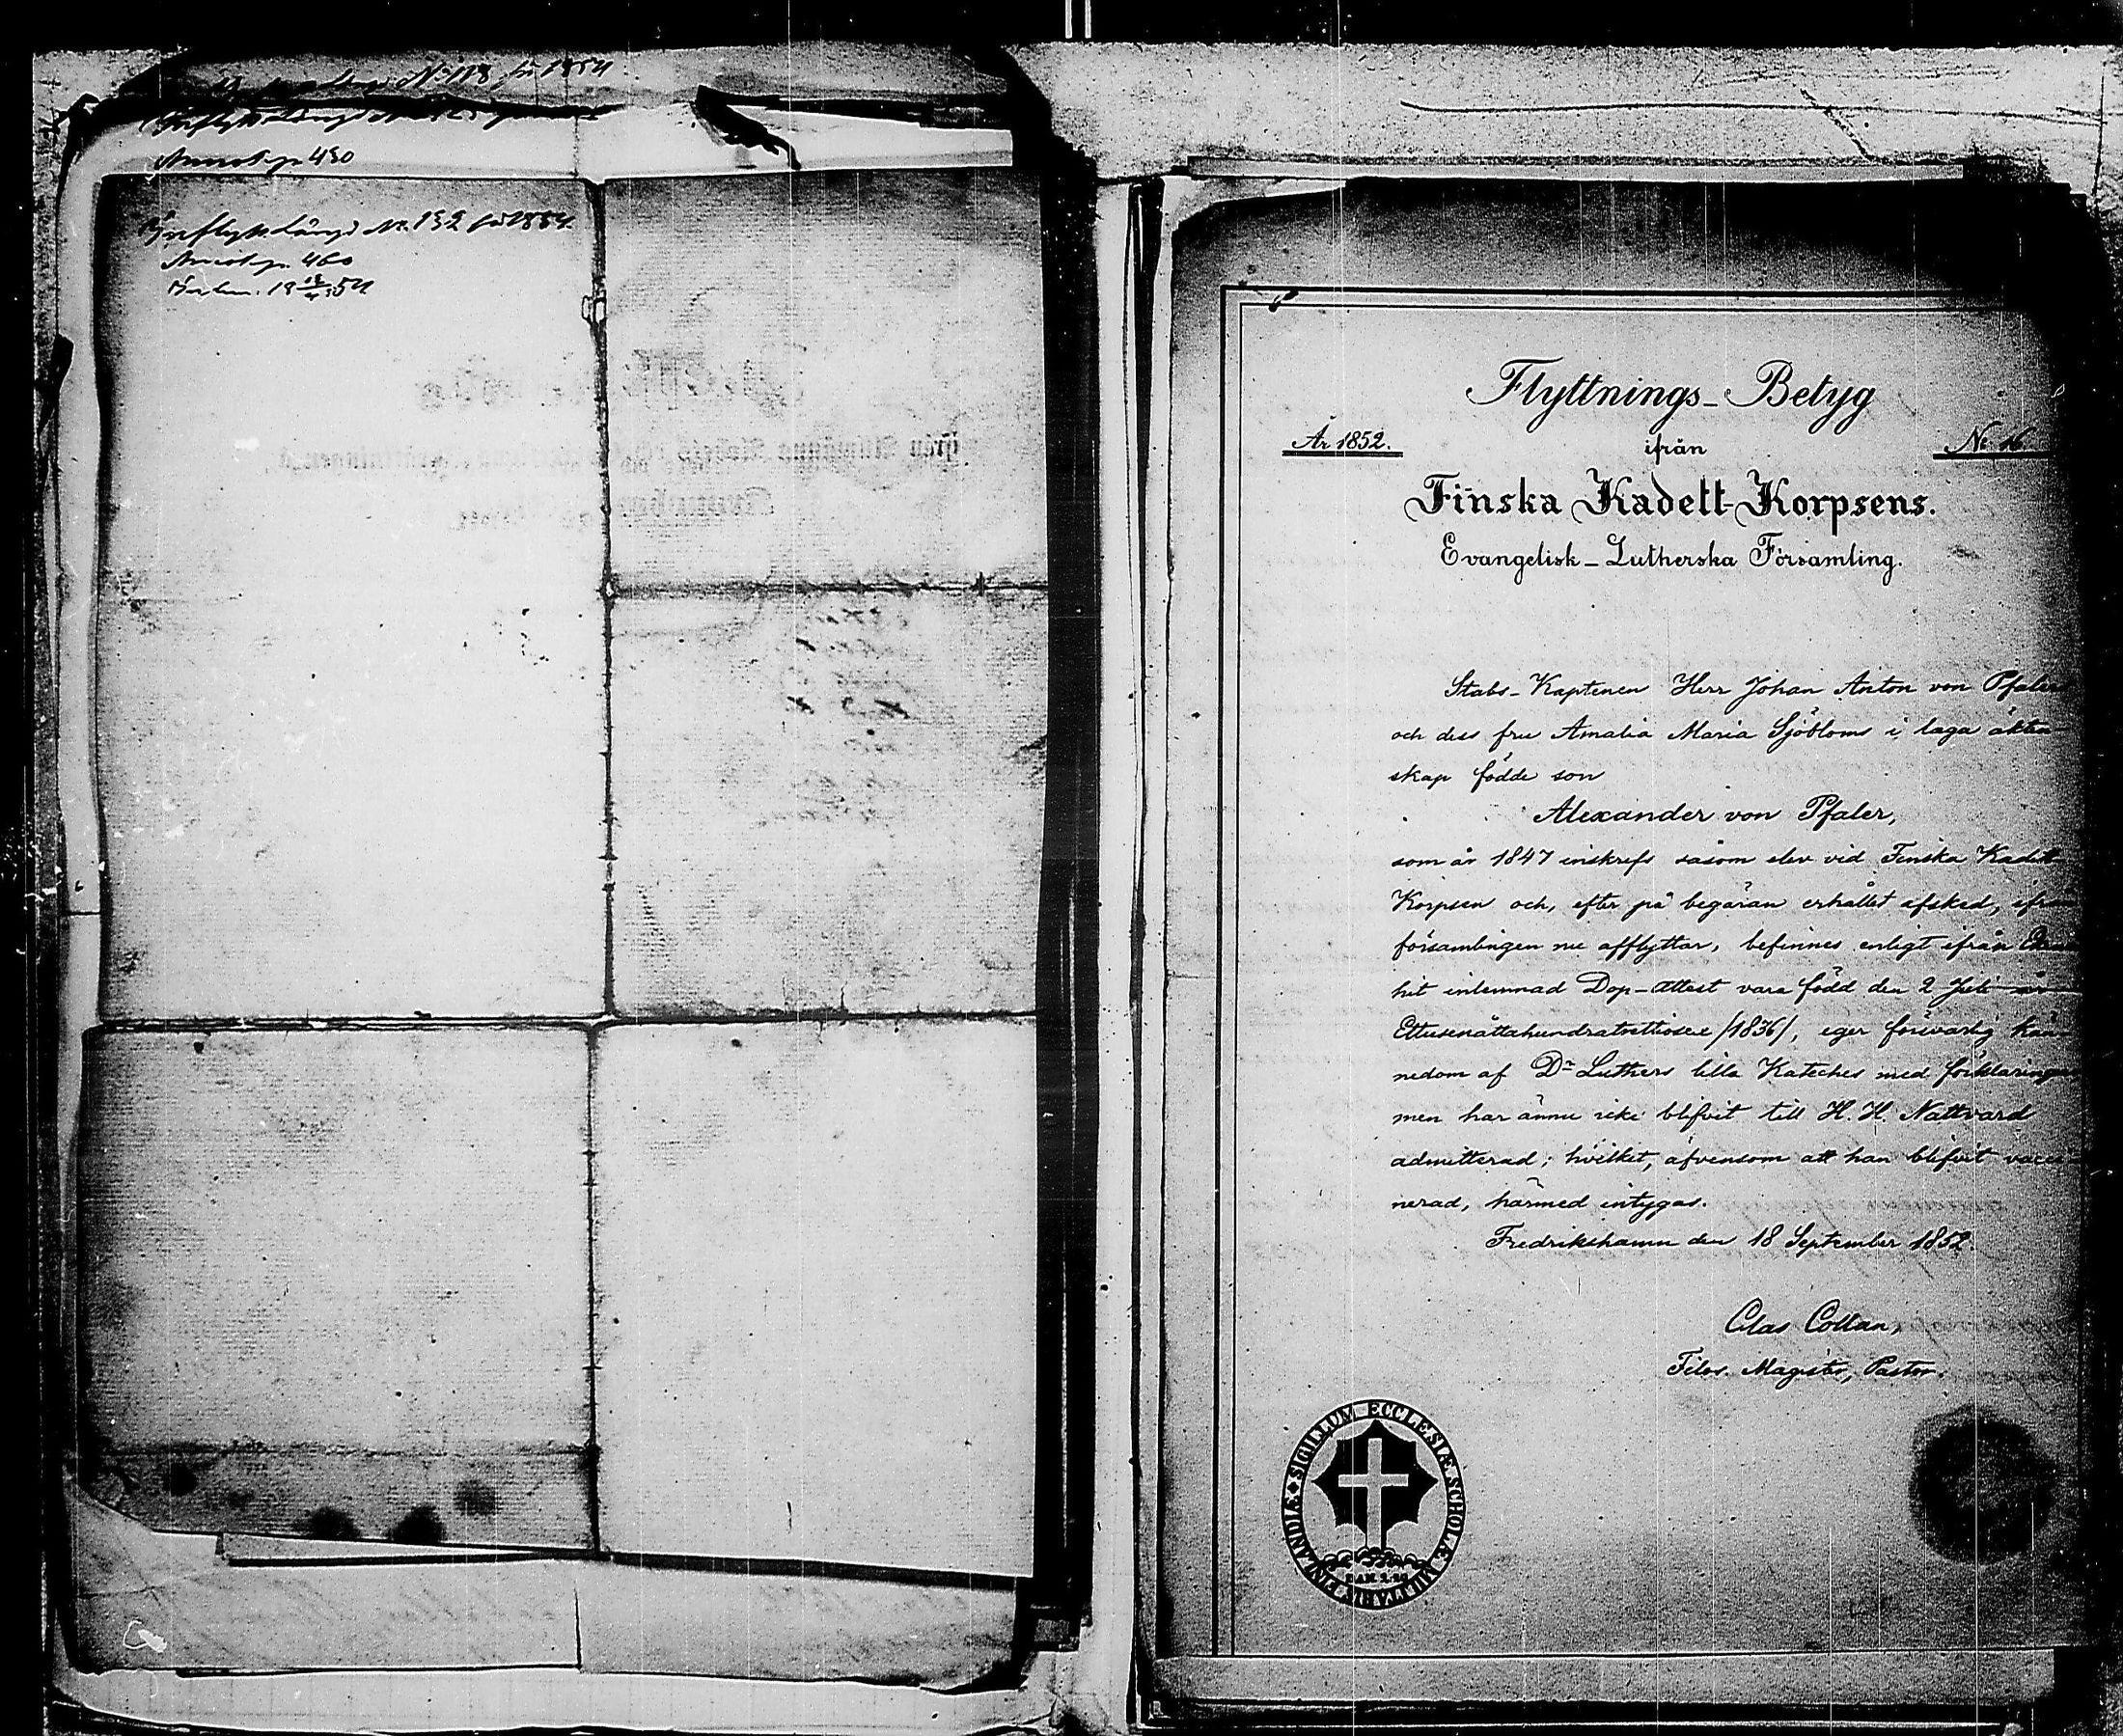 No 118 för 1854
Annot. p. 430
Inflyttslängd No. 132 för 1854.
Annot. p. 460
Flyttnings-Betyg
År 1852.
ifrån
No 16
Finska Kadett-Korpsens.
Evangelisk-Lutherska Församling.
Stabs-Kaptenen Herr Johan Anton von Pfaler
och dess fru Amalia Maria Sjöbloms i laga äkten-
skap födde son
Alexander von Pfaler,
som år 1847 inskrefs såsom elev vid Finska Kadett
Korpsen och, efter på begäran erhållet afsked, ifrån
församlingen nu afflyttar, befinnes enligt ifrån
hit inlemnad Dop-attest vara född den 2 Juli år
Ettusenåttahundratrettiosex /1836/, eger försvarlig kän
nedom af Dr Luthers lilla Kateches med förklaringen
men har ännu icke blifvit till H. H. Nattvard
admitterad; hvilket, äfvensom att han blifvit vacci
nerad, härmed intygas.
Fredrikshamn den 18 September 1852.
Clas Collan,
Filos. Magister, Pastor.
SIGILLUM ECCLESIÆ SCHOLÆ MILITARIS FINLANDIÆ